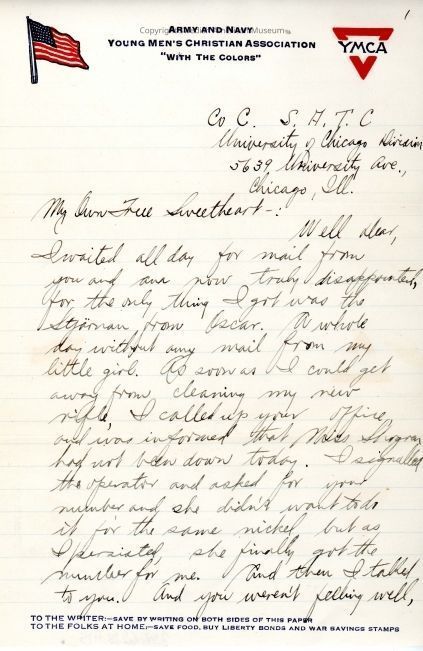 1
ARMY AND NAVY
YOUNG MEN'S CHRISTIAN ASSOCIATION
"WITH THE COLORS"
YMCA
Co C. S. A. T. C
University of Chicago Division
5639, University Ave.,
Chicago, Ill.
My Own True Sweetheart-:
Well dear,
I waited all day for mail from
you and am now truly disappointed,
for the only thing I got was the
Stjärnan from Oscar. A whole
day without any mail from my
little girl. As soon as I could get
away from cleaning my new
rifle, I called up your office
and was informed that Miss
had not been down today. I signalled
the operator and asked for your
number and she didn't want to do
it for the same nickel, but as
I persisted, she finally got the
number for me. And then I talked
to you. And you weren't feeling well,
TO THE WRITER:—SAVE BY WRITING ON BOTH SIDES OF THIS PAPER
TO THE FOLKS AT HOME:—SAVE FOOD, BUY LIBERTY BONDS AND WAR SAVINGS STAMPS